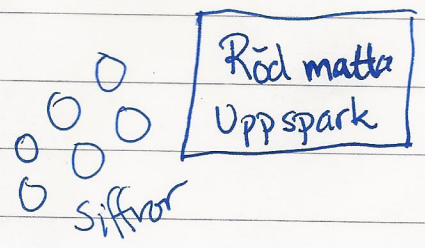 Röd matta
Uppspark
Siffror